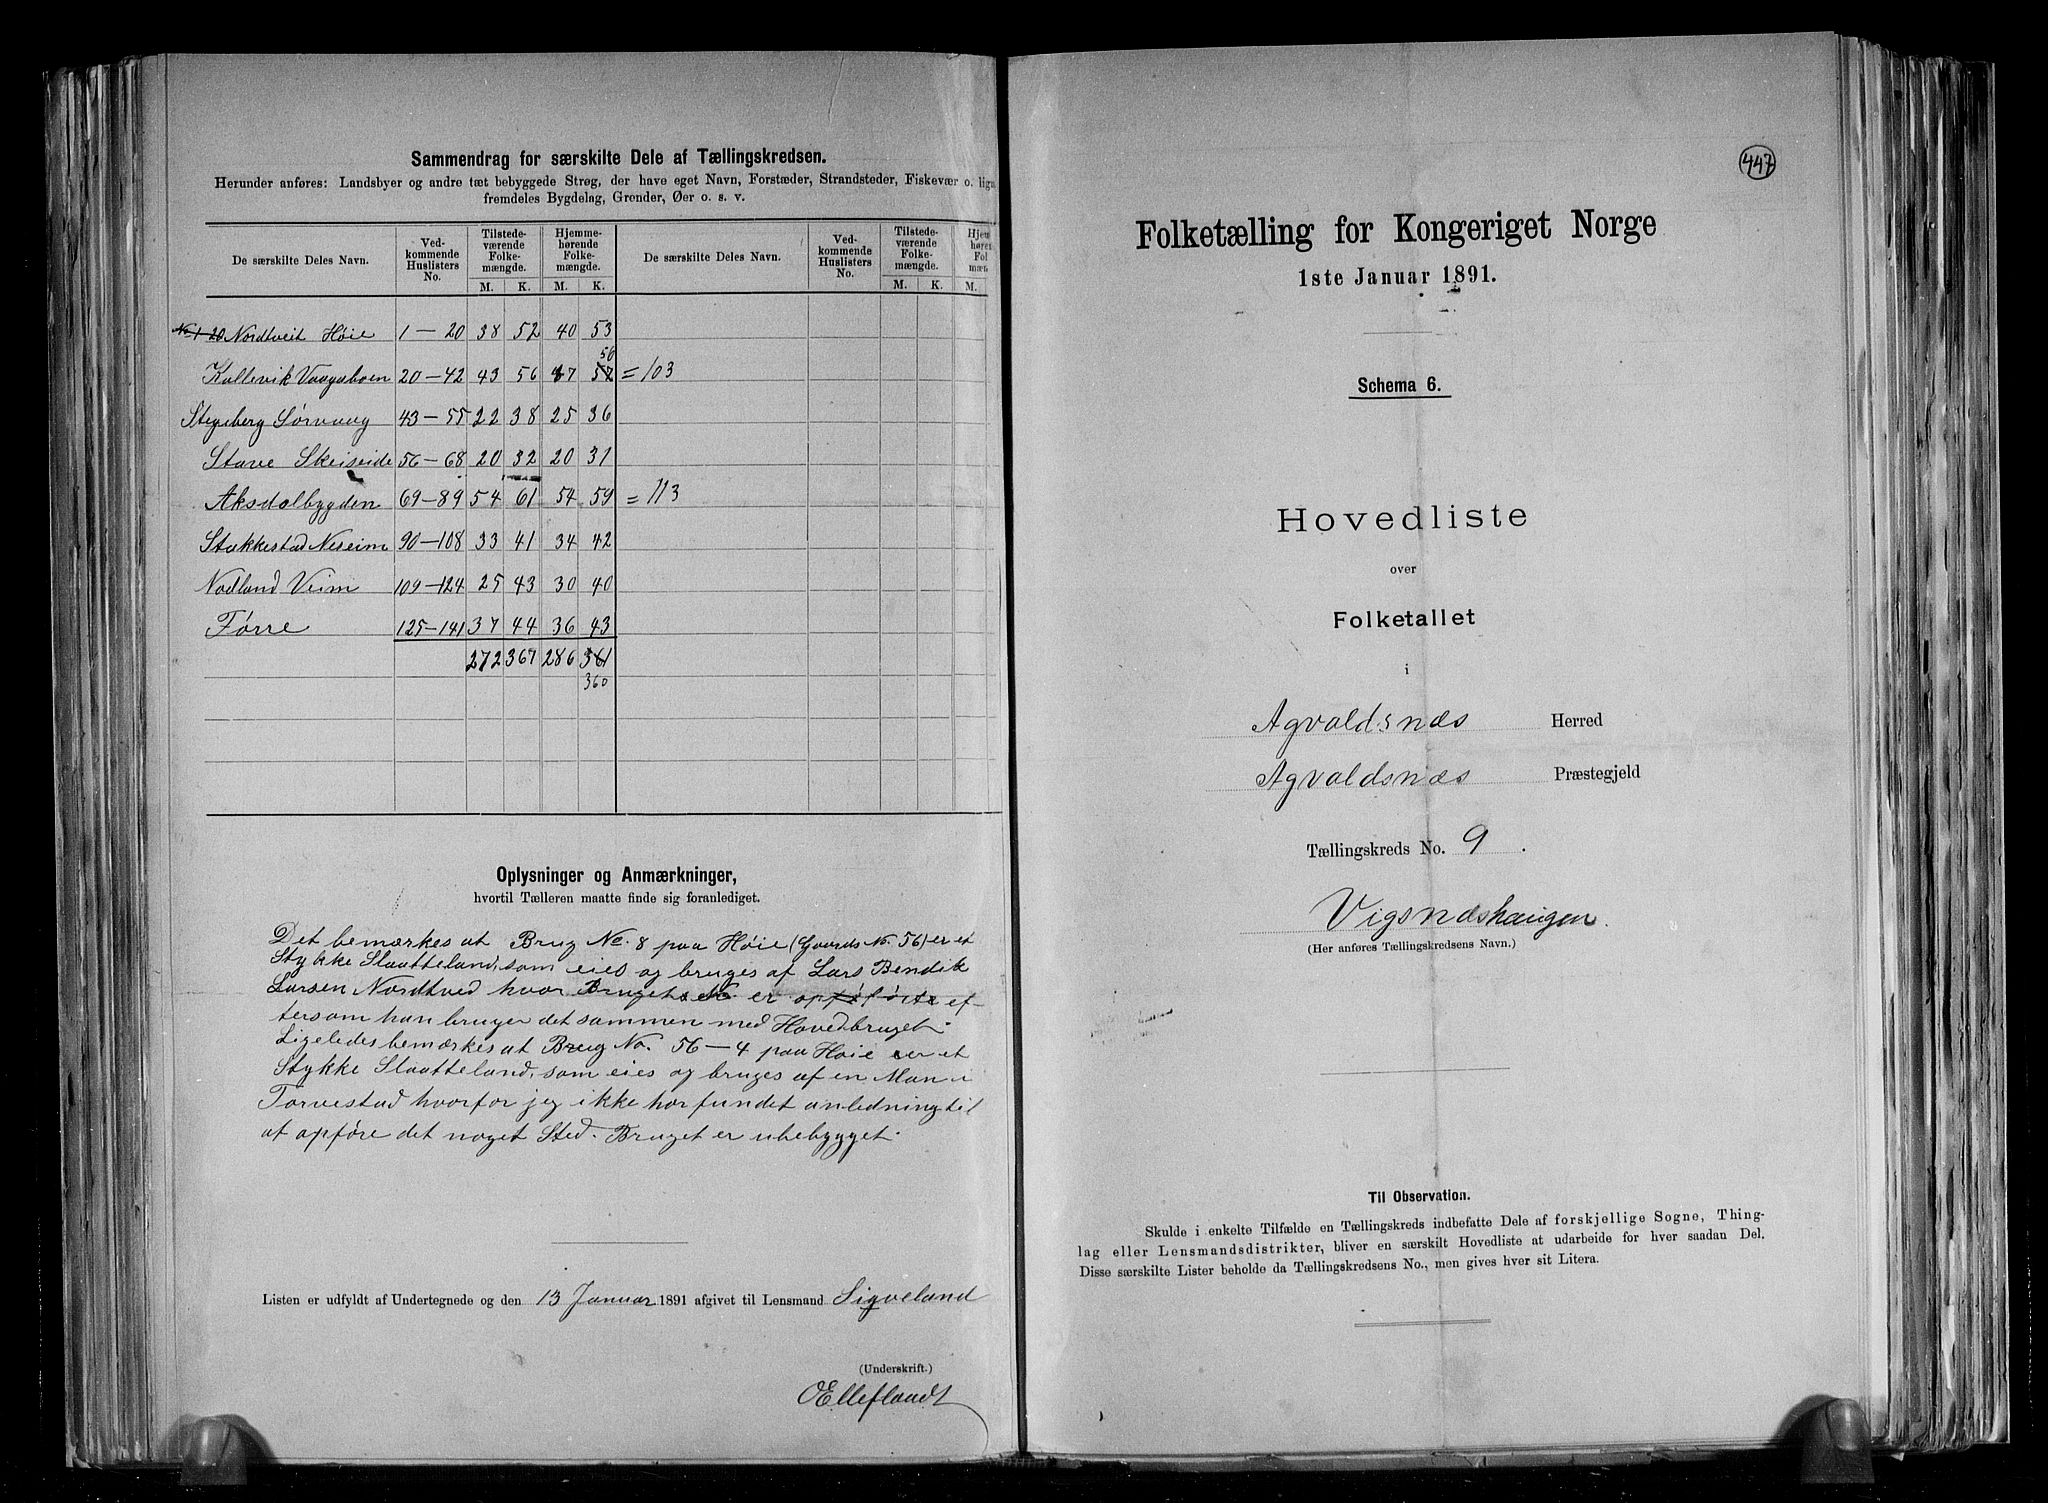 Sammendrag for særskilte Dele af Tællingskredsen.
Herunder anføres: Landsbyer og andre tæt bebyggede Strøg, der have eget Navn, Forstæder, Strandsteder, Fiskevær o. lign
fremdeles Bygdelag, Grender, Øer o. s. v.
De særskilte Deles Navn. Ved-kommende Huslisters No. Tilstede-værende Folke-mængde. Hjemme-hørende Folke-mængde. De særskilte Deles Navn. Ved-kommende Huslisters No. Tilstede-værende Folke-mængde. Hjem høren Fol mæn
M. K. M. K. M. K. M.
No 1-20 Nordtveit Høie 1 — 20 38 52 40 53
56
Kallevik Vaagaboen 20 — 42 43 56 47 57 = 103
Stegaberg Sørvaag 43 — 55 22 38 25 36
Stave Skeiseide 56 — 68 20 32 20 31
Aksdalbygden 69 — 89 54 61 54 59 = 113
Stakkestad Neseim 90 — 108 33 41 34 42
Nodland Veim 109 — 124 25 43 30 40
Førre 125 — 141 37 44 36 43
272 367 286 361
360
Oplysninger og Anmærkninger,
hvortil Tælleren maatte finde sig foranlediget.
Det bemærkes at Brug No. 8 paa Høie (Gaards No. 56) er et
Stykke Slaatteland, som eies og bruges af Lars Bendik
Larsen Nordtved hvor Brugets No. er opført ef-
tersom han bruger det sammen med Hovedbruget.
Ligeledes bemærkes at Brug No. 56 — 4 paa Høie er et
Stykke Slaatteland, som eies og bruges af en Man i
Torvestad hvorfor jeg ikke har fundet anledning til
at opføre det noget Sted. Bruget er ubebygget.
Listen er udfyldt af Undertegnede og den 13 Januar 1891 afgivet til Lensmand Sigveland
(Underskrift.)
OElleflandt
447
Folketælling for Kongeriget Norge
1ste Januar 1891.
Schema 6.
Hovedliste
over
Folketallet
i
Agvaldsnæs Herred
Agvaldsnæs Præstegjeld
Tællingskreds No. 9.
Vigsnæshaugen.
(Her anføres Tællingskredsens Navn.)
Til Observation.
Skulde i enkelte Tilfælde en Tællingskreds indbefatte Dele af forskjellige Sogne, Thing-
lag eller Lensmandsdistrikter, bliver en særskilt Hovedliste at udarbeide for hver saadan Del.
Disse særskilte Lister beholde da Tællingskredsens No., men gives hver sit Litera.